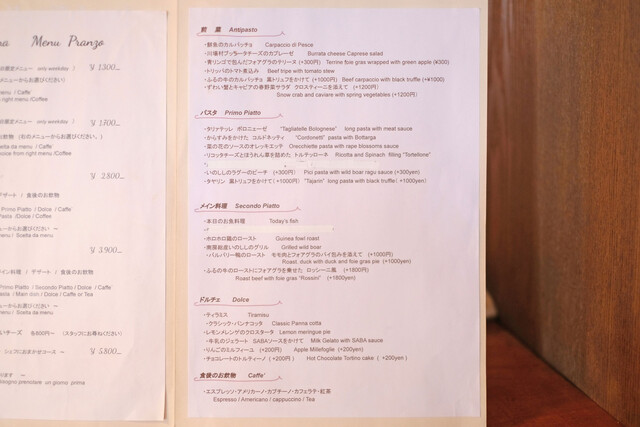 Menu Pranzo
only weekday
¥ 1.300_
メニューからお選びください
menu / Caffe
right menu /Coffee
only weekday
¥ 1.700_
お飲物 (右のメニューからお選びください。)
Scelta da menu / Caffe
choice from right menu /Coffee
¥ 2.800_
デザート / 食後のお飲物
Primo Piatto / Dolce / Caffe
Pasta / Dolce / Coffee
メニューからお選びください ～
menu / Scelta da menu
¥ 3.900_
メイン料理 / デザート / 食後のお飲物
Primo Piatto / Secondo Piatto / Dolce / Caffe
Pasta / Main Dish / Dolce / Caffe or Tea
メニューからお選びください ～
menu / Scelta da menu
チーズ 各800円～ (スタッフにお尋ねください)
シェフにおまかせコース ～
¥ 5.800_
bisogno prenotare un giorno prima
前 菜 Antipasto
・鮮魚のカルパッチョ Carpaccio di Pesce
・川場村ブッラータチーズのカプレーゼ Burrata cheese Caprese salad
・青リンゴで包んだフォアグラのテリーヌ (+300円) Terrine foie gras wrapped with green apple (¥300)
・トリッパのトマト煮込み Beef tripe with tomato stew
・ふるの牛のカルパッチョ 黒トリュフをかけて (+1000円) Beef carpaccio with black truffle (+¥1000)
・ずわい蟹とキャビアの春野菜サラダ クロスティーニを添えて (+1200円)
Snow crab and caviare with spring vegetables (+1200円)
パスタ Primo Piatto
・タリァテッレ ボロニェーゼ "Tagliatelle Bolognese" long pasta with meat sauce
・からすみをかけた コルドネッティ "Cordonetti" pasta with Bottarga
・菜の花のソースのオレッキエッテ Orecchiette pasta with rape blossoms sauce
・リコッタチーズとほうれん草を詰めた トルテッローネ Ricotta and Spinach filling "Tortellone"
(+300円)
・いのししのラグーのピーチ (+300円) Pici pasta with wild boar ragu sauce (+300yen)
・タヤリン 黒トリュフをかけて(+1000円) "Tajarin" long pasta with black truffle (+1000yen)
メイン料理 Secondo Piatto
・本日のお魚料理 Today's fish
・ホロホロ鶏のロースト Guinea fowl roast
・いのししのグリル Grilled wild boar
・バルバリー鴨のロースト モモ肉とフォアグラのパイ包みを添えて (+1000円)
Roast, duck with duck and foie gras pie (+1000yen)
・ふるの牛のローストにフォアグラを乗せた ロッシーニ風 (+1600円)
Roast beef with foie gras "Rossini" (+1600yen)
ドルチェ Dolce
・ティラミス Tiramisu
・クラシック・パンナコッタ Classic Panna cotta
・レモンメレンゲのクロスタータ Lemon meringue pie
・牛乳のジェラート SABAソースをかけて Milk Gelato with SABA sauce
・りんごのミルフィーユ (+200円) Apple Millefoglie (+200yen)
・チョコレートのトルティーノ (+200円) Hot Chocolate Tortino cake (+200yen)
食後のお飲物 Caffe'
・エスプレッソ・アメリカーノ・カプチーノ・カフェラテ・紅茶
Espresso / Americano / cappuccino / Tea